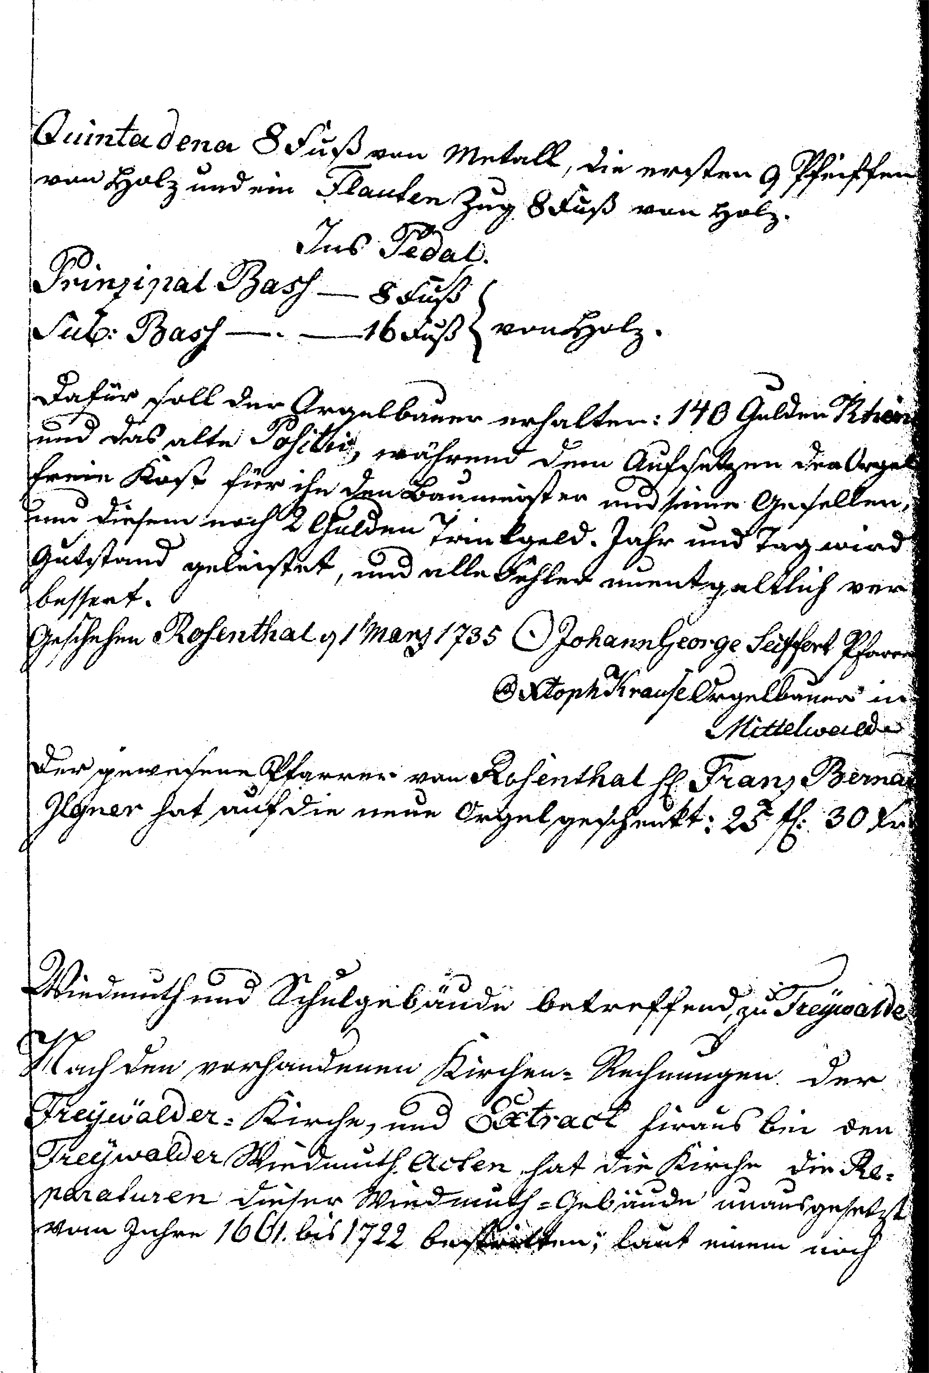 Quintadena 8 Fuß von Metall, die ersten 9 Pfeiffen
von Holz und ein Flauten Zug 8 Fuß von Holz.
Ins Pedal.
Prinzipal Bass — 8 Fuß
Sub: Bass — . — 16 Fuß } von Holz.
Dafür soll der Orgelbauer erhalten: 140 Gulden Rhein
und das alte Positiv, während dem Aufsetzen der Orgel
freie Kost für ihn den Baumeister und seine Gesellen,
und diesem noch 2 Gulden Trinkgeld. Jahr und Tag wird
Gutstand geleistet, und alle Fehler unentgaltlich ver
bessert.
Geschehen Rosenthal 91 März 1735 Johann George Seiffert Pfarrer
Xtoph Krause Orgelbauer in
Mittelwalde
Der gewesene Pfarrer von Rosenthal H. Franz Berna
Ilgner hat auf die neue Orgel geschenkt: 25 fl: 30 Kr
Wiedmuth und Schulgebäude betreffend, zu Freywalde
Nach den vorhandenen Kirchen- Rechnungen der
Freywälder- Kirche, und Extract hiraus bei den
Freywalder Wiedmuth. Acten hat die Kirche die Re-
paraturen dieser Wiedmuth-Gebäude unausgesetzt
vom Jahre 1661. bis 1722 bestritten; laut einem noch